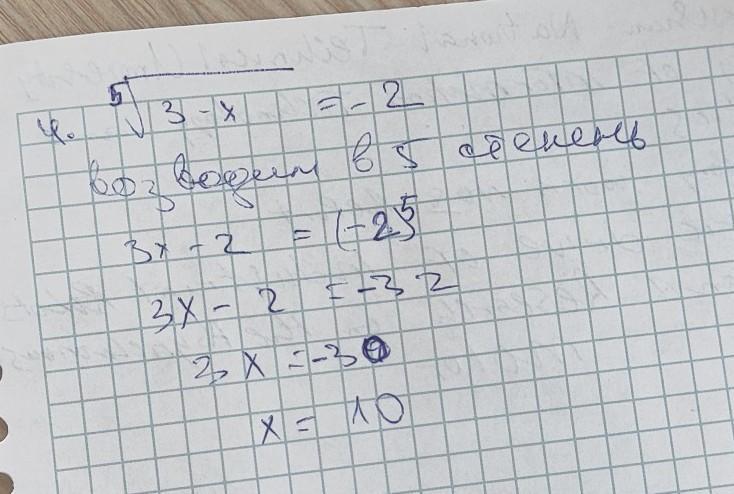 4. ⁵√3-x = -2
возводим в 5 степень
3x - 2 = (-2)⁵
3x - 2 = -32
3x = -30
x = 10